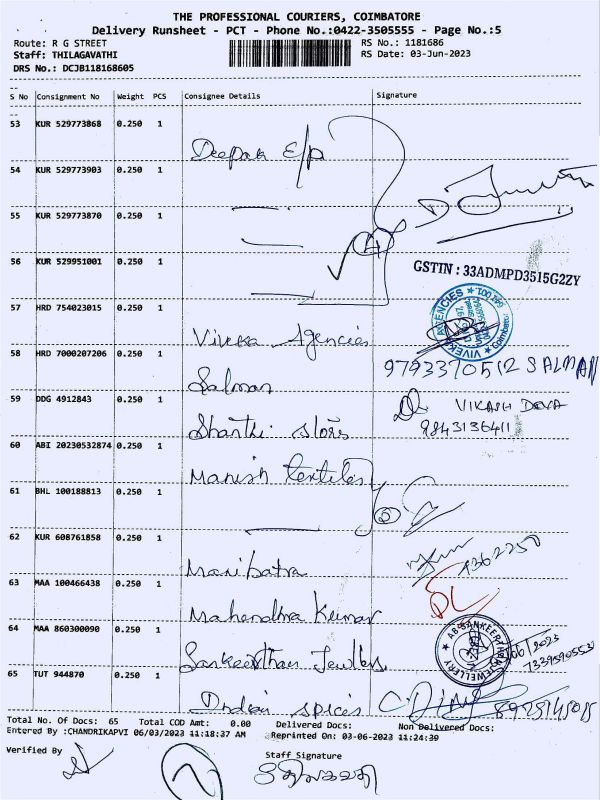 THE PROFESSIONAL COURIERS, COIMBATORE
Delivery Runsheet - PCT - Phone No.:0422-3505555 - Page No.:5
Route: R G STREET RS No.: 1181686
Staff: THILAGAVATHI RS Date: 03-Jun-2023
DRS No.: DCJB118168605
S No Consignment No Weight PCS Consignee Details Signature
53 KUR 529773868 0.250 1 Deepak E/p
54 KUR 529773903 0.250 1
55 KUR 529773870 0.250 1
56 KUR 529951001 0.250 1
4
GSTIN : 33ADMPD3515G2ZY
57 HRD 754023015 0.250 1 Viveka Agencies
VIVEKA AGENCIES Coimbatore
58 HRD 7000207206 0.250 1 Salman 9793370512 SALMAN
59 DDG 4912843 0.250 1 Shanthi Stors VIKASH DEVA
9843136411
60 ABI 20230532874 0.250 1 Manish textiles
61 BHL 100188813 0.250 1
2
62 KUR 608761858 0.250 1 Manibatra
63 MAA 100466438 0.250 1 Mahendhra Kumar
64 MAA 860300090 0.250 1 Sankeerthan Jewllers
JEWELLERY
65 TUT 944870 0.250 1 Indian spices
Total No. Of Docs: 65 Total COD Amt: 0.00 Delivered Docs: Non Delivered Docs:
Entered By :CHANDRIKAPVI 06/03/2023 11:18:37 AM Reprinted On: 03-06-2023 11:24:39
Verified By Staff Signature